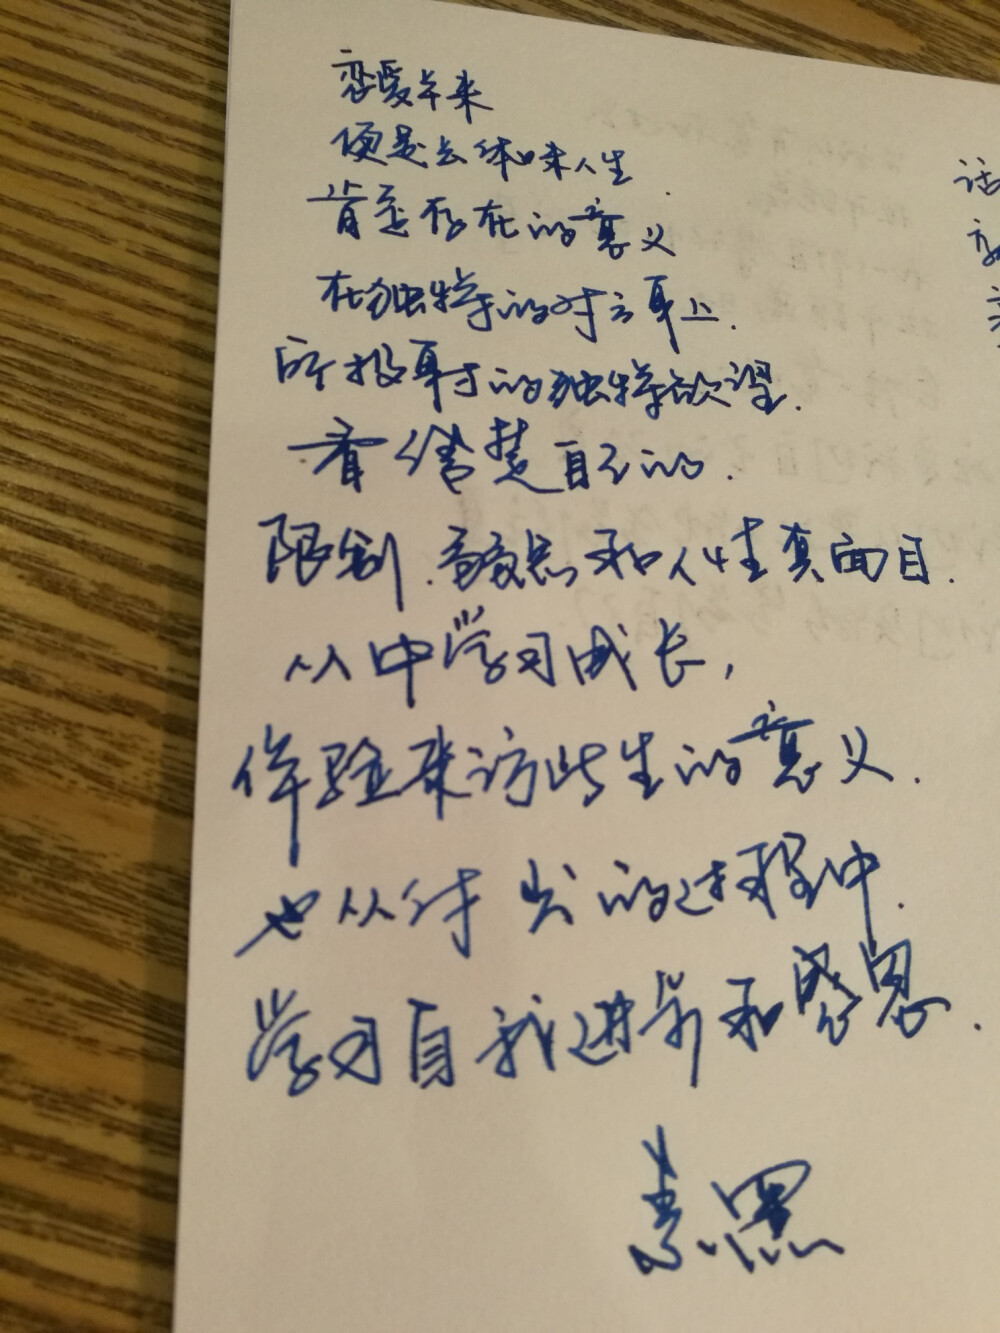 恋爱本来
便是去体味人生
肯定存在的意义
在独特的对象身上.
所投射的独特欲望.
看清楚自己的.
限制. 和人性真面目.
从中学习成长,
体验来访此生的意义.
也从付出的过程中.
学习自我进步和感恩.
话